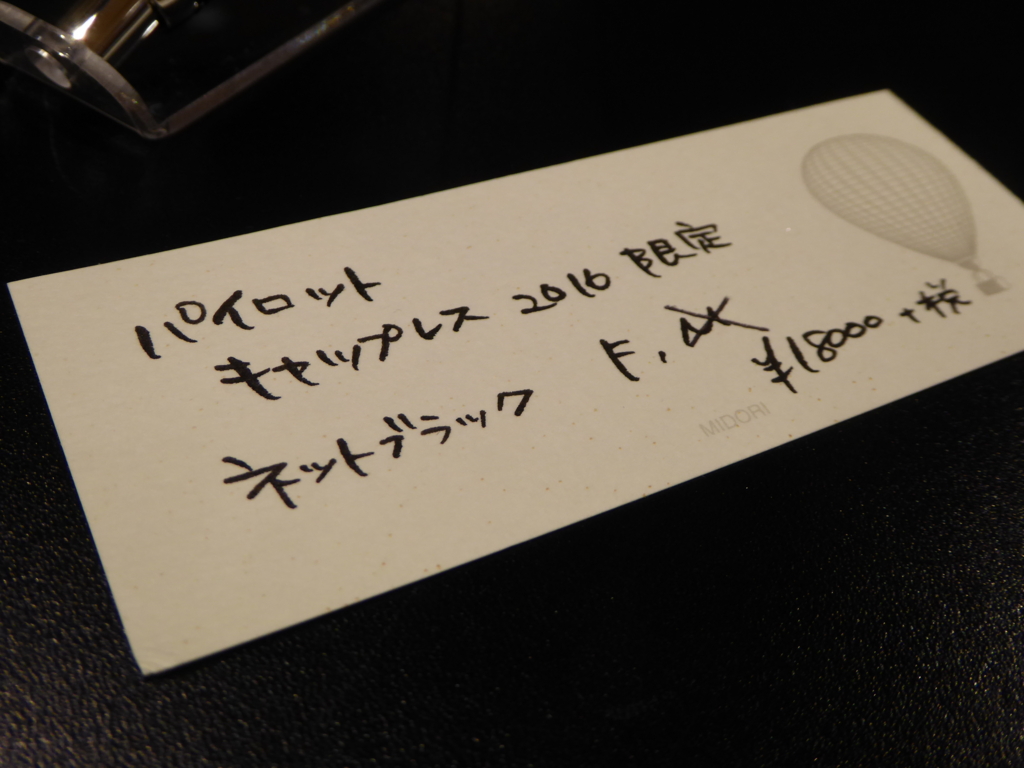 パイロット
キャップレス 2016 限定
ネットブラック F, M
¥18000+税
MIDORI